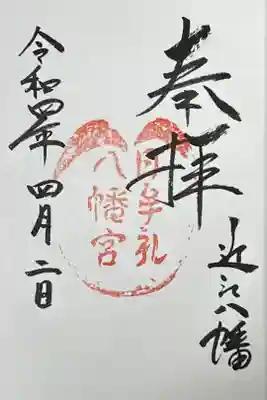 奉拝
近江八幡
日牟礼
八幡宮
令和四年 四月 二日